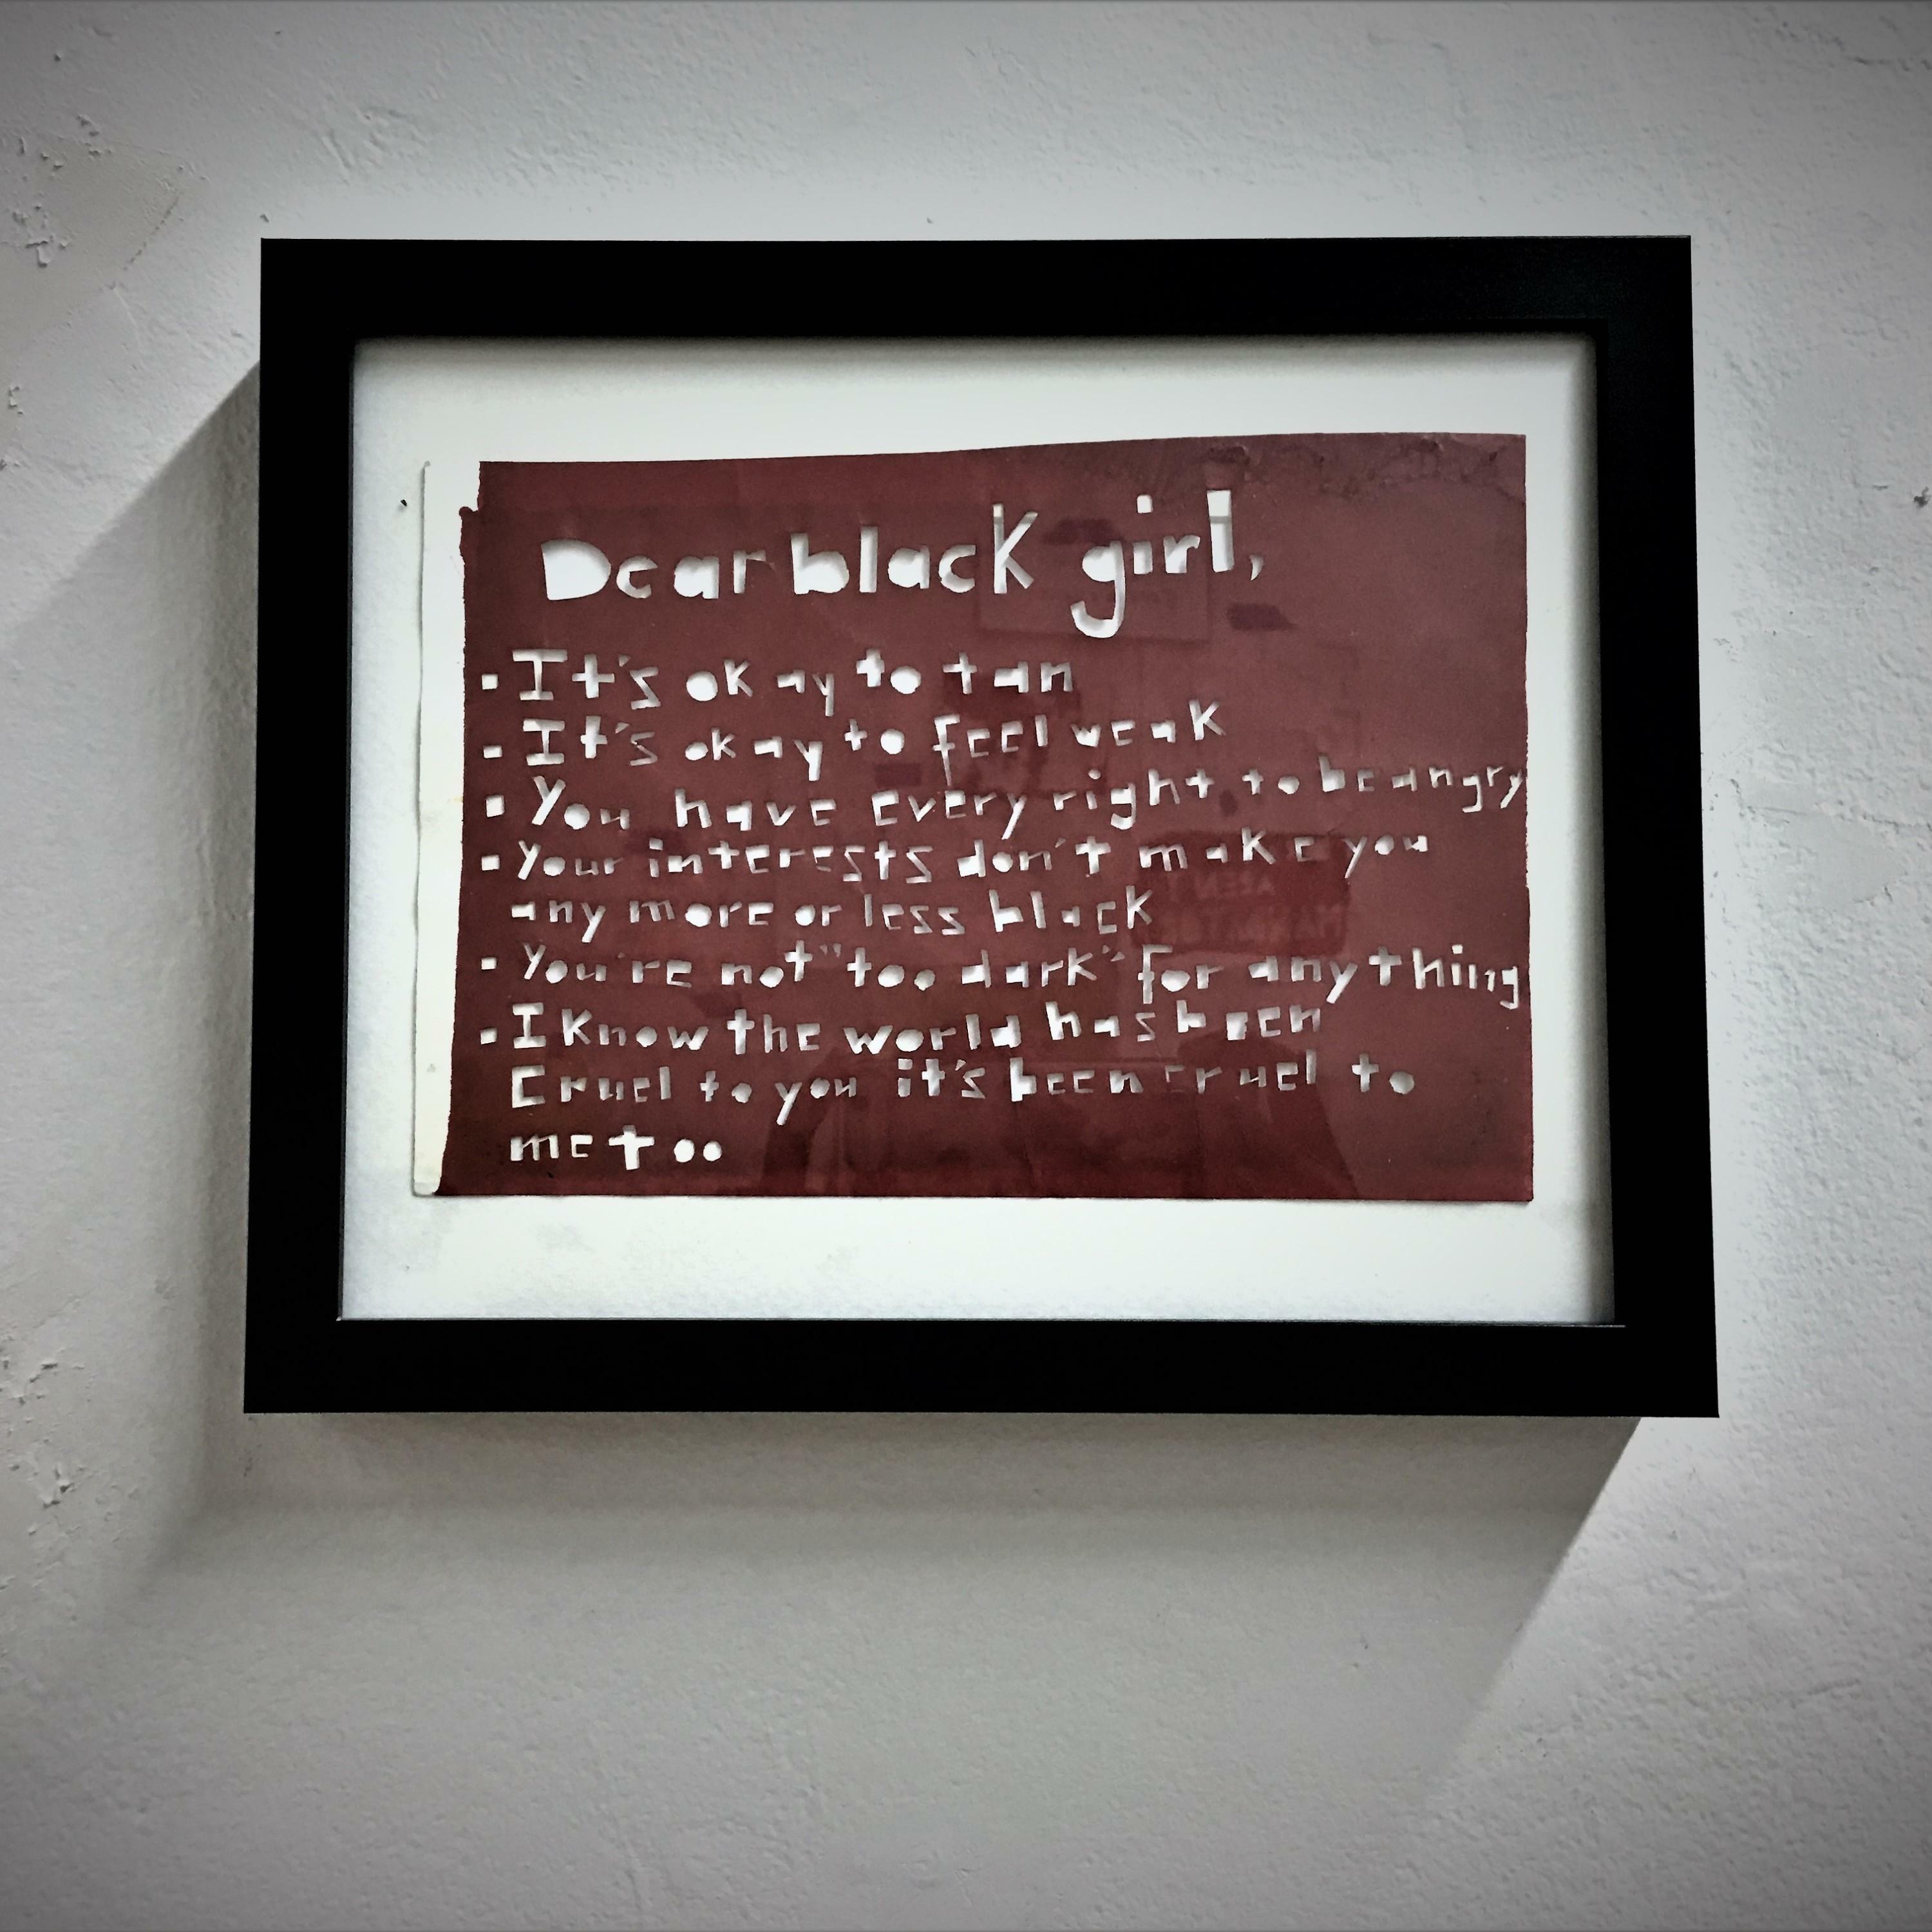 Dear black girl,
▪ It's okay to tan
▪ It's okay to feel weak
▪ You have every right to be angry
▪ Your interests don't make you
any more or less black
▪ You're not "too dark" for anything
▪ I know the world has been
Cruel to you it's been cruel to
me too